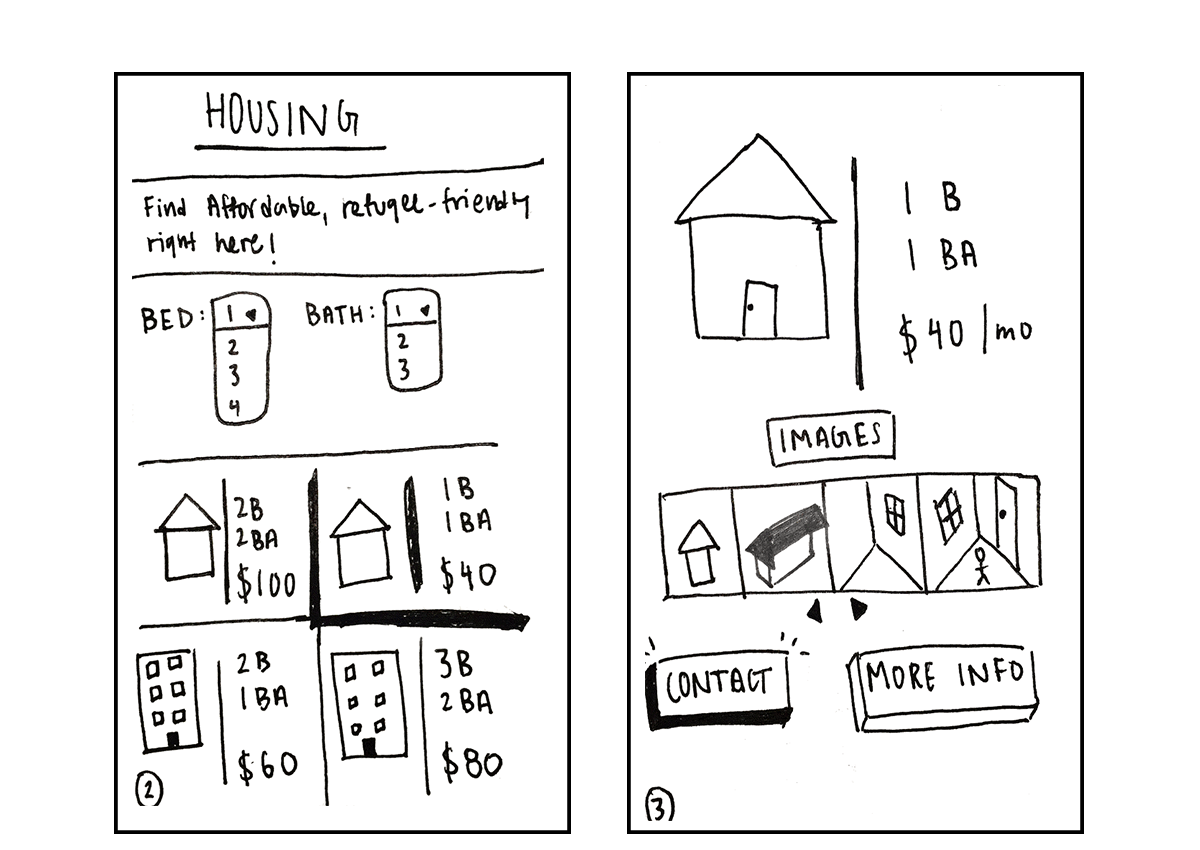 HOUSING
Find Affordable, refugee-friendly
right here!
BED: 1
2
3
4
BATH: 1
2
3
2B
2BA
$100
1B
1BA
$40
2B
1BA
$60
3B
2BA
$80
2
1 B
1 BA
$40/mo
IMAGES
CONTACT
MORE INFO
3